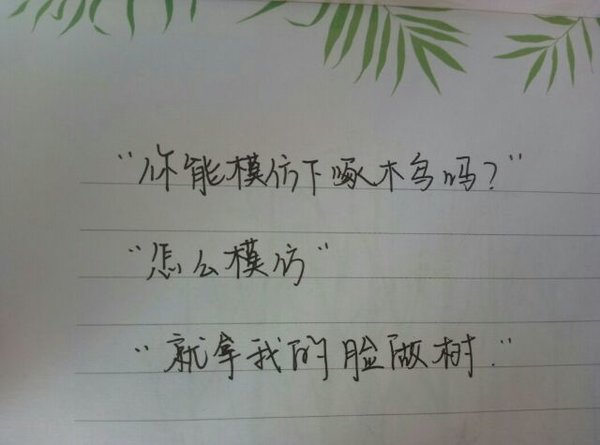 “你能模仿下啄木鸟吗？”
“怎么模仿”
“就拿我的脸做树.”